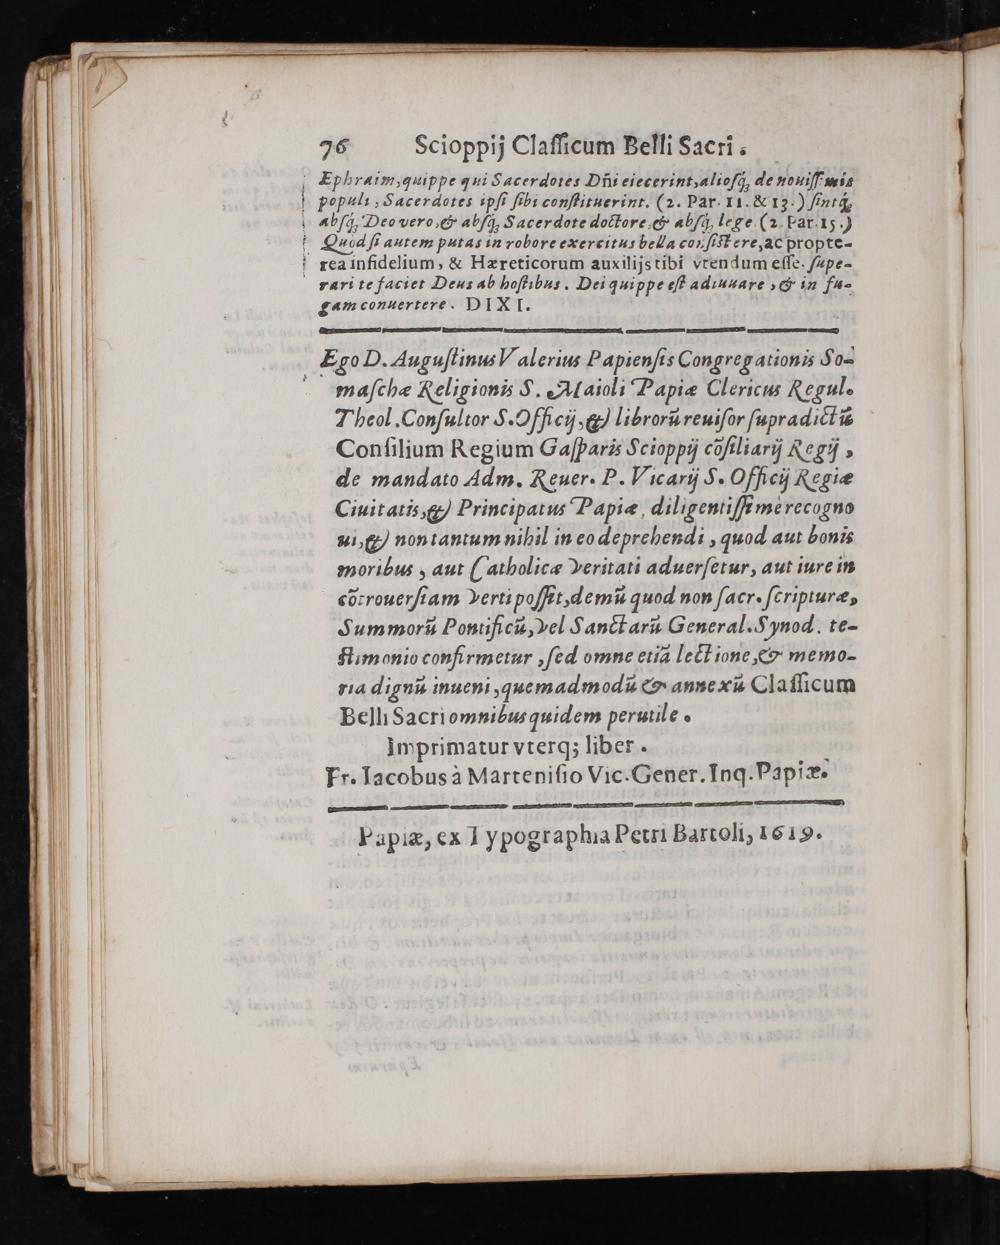 76 Scioppij Classicum Belli Sacri.
Ephraim, quippe qui Sacerdotes Dñi eiecerint, aliosq; de nouissimis
populi, Sacerdotes ipsi sibi constituerint. (2. Par. 11. & 13.) sintq;
absq; Deo vero, & absq; Sacerdote doctore, & absq; lege (2. Par. 15.)
Quod si autem putas in robore exercitus bella consistere, ac propte-
rea infidelium, & Hæreticorum auxilijs tibi vtendum esse. supe-
rari te faciet Deus ab hostibus. Dei quippe est adiuuare, & in fu-
gam conuertere. DIXI.
Ego D. Augustinus Valerius Papiensis Congregationis So-
maschæ Religionis S. Maioli Papiæ Clericus Regul.
Theol. Consultor S. Officij, & librorũ reuisor supradictũ
Consilium Regium Gasparis Scioppij cõsiliarij Regij,
de mandato Adm. Reuer. P. Vicarij S. Officij Regiæ
Ciuitatis, & Principatus Papiæ, diligentissime recogno
ui, & non tantum nihil in eo deprehendi, quod aut bonis
moribus, aut Catholicæ veritati aduersetur, aut iure in
cõtrouersiam verti possit, demũ quod non sacr. scripturæ,
Summorũ Pontificũ, vel Sanctarũ General. Synod. te-
stimonio confirmetur, sed omne etiã lectione, & memo-
ria dignũ inueni, quemadmodũ & annexũ Classicum
Belli Sacri omnibus quidem perutile.
Imprimatur vterq; liber.
Fr. Iacobus à Martenisio Vic. Gener. Inq. Papiæ.
Papiæ, ex Typographia Petri Bartoli, 1619.